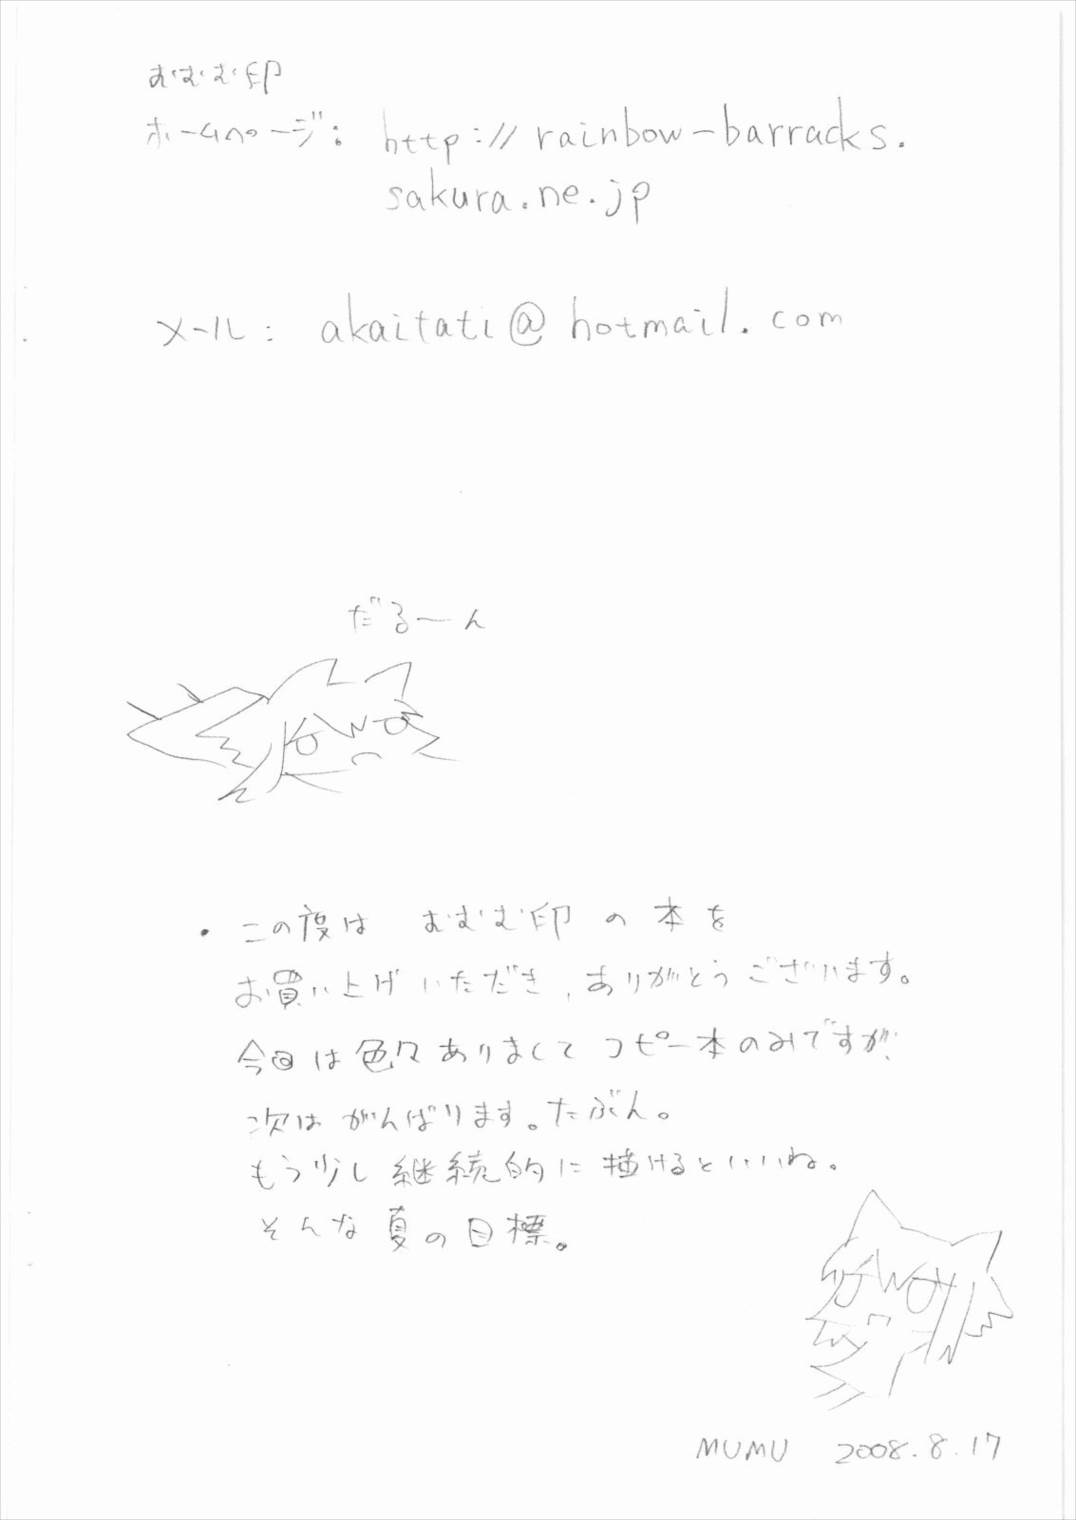 むむむ印
ホームページ: http://rainbow-barracks.
sakura.ne.jp
メール: akaitati@hotmail.com
だるーん
・この度は むむむ印 の 本を
お買い上げ いただき、ありがとうございます。
今回は色々ありまして コピー本のみですが、
次は がんばります。たぶん。
もう少し 継続的に 描けるといいね。
そんな 夏の目標。
MUMU 2008.8.17